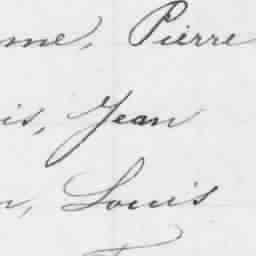 me, Pierre
is, Jean
n, Louis